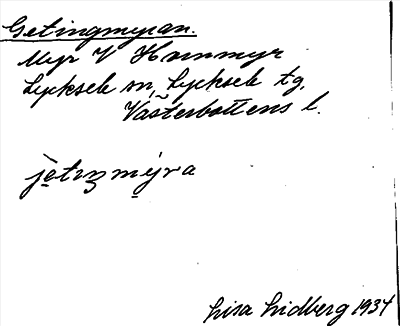 Getingmyran.
Myr V Hornmyr
Lycksele sn, Lycksele tg,
Västerbottens l.
jetiŋmýra
Lisa Lidberg 1934